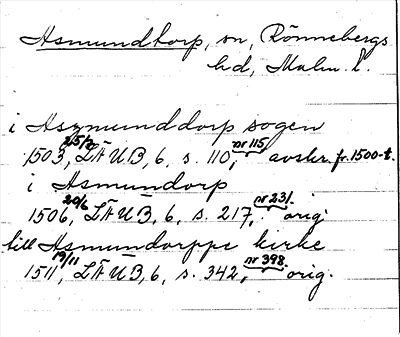 Asmundtorp, sn, Rönnebergs
hd, Malm. l.
i Aszmunddorp sogen
1503 25/2, LÄUB, 6, s. 110, nr 115, avskr. fr. 1500-t.
i Asmundorp
1506 20/6, LÄUB, 6, s. 217, nr 231. orig.
till Asmundorppe kirke
1511 19/11, LÄUB, 6, s. 342, nr 398. orig.